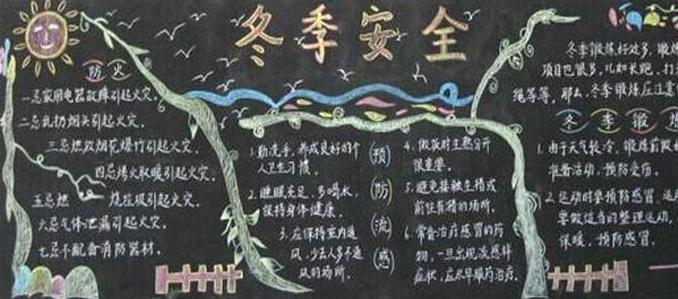 冬季安全
防火
一忌家用电器故障引起火灾。
二忌乱扔烟头引起火灾。
三忌燃放烟花爆竹引起火灾。
四忌烤火取暖引起火灾。
五忌燃 烧垃圾引起火灾。
六忌气体泄漏引起火灾。
七忌不配备消防器材。
预防流感
1.勤洗手,养成良好的个
人卫生习惯。
2.睡眠充足,多喝水,
保持身体健康。
3.应保持室内通
风,少去人多不通
风的场所。
4.做饭时生熟分开
很重要。
5.避免接触生猪或
前往有猪的场所。
6.常备治疗感冒的药
物,一旦出现流感样
症状,应尽早服药治疗。
冬季锻炼好处多,锻炼
项目也很多,儿如长跑、打
绳等等。那么,冬季锻炼应注意
冬季锻
1.由于天气较冷,锻炼前做好
准备活动,预防受伤。
2.运动时要预防感冒,运
要做适当的整理运动,
保暖,预防感冒。